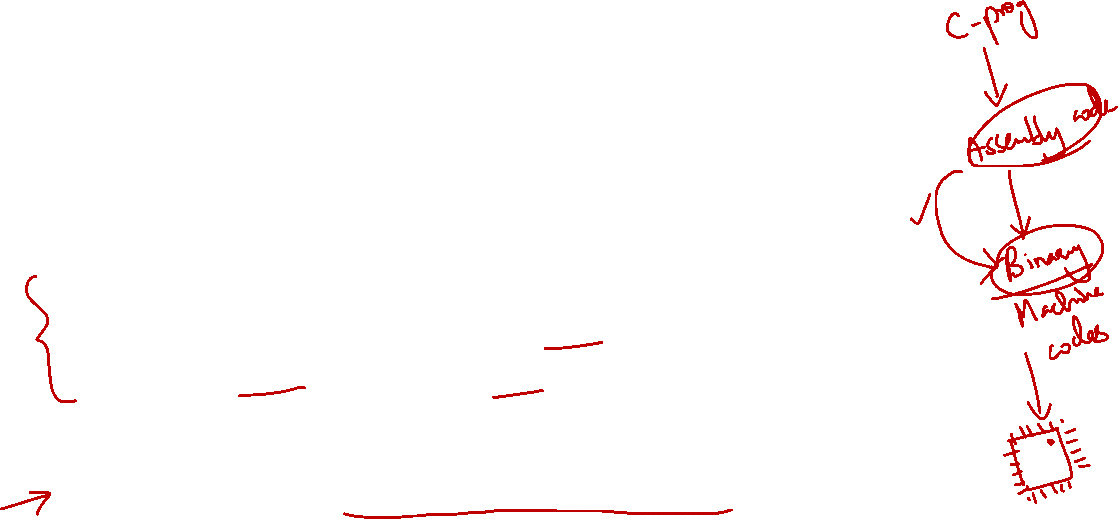 C-prog
Assembly code
Binary
Machine
codes